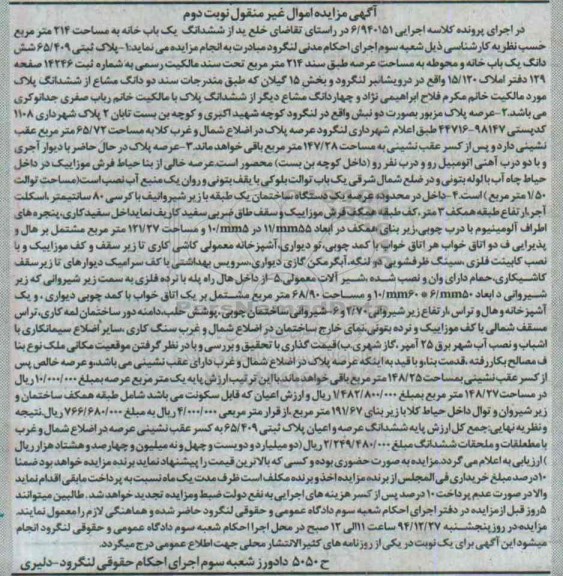 آگهی مزایده اموال غیر منقول نوبت دوم
در اجرای پرونده کلاسه اجرایی ۶/۹۴۰۱۵۱ در راستای تقاضای خلع ید از ششدانگ یک باب خانه به مساحت ۲۱۴ متر مربع
حسب نظریه کارشناسی ذیل شعبه سوم اجرای احکام مدنی لنگرود مبادرت به انجام مزایده می نماید: ۱-پلاک ثبتی ۶۵/۴۰۹ شش
دانگ یک باب خانه و محوطه به مساحت عرصه طبق سند ۲۱۴ متر مربع تحت سند مالکیت رسمی به شماره ثبت ۱۴۲۴۶ صفحه
۱۲۹ دفتر املاک ۱۵/۱۲۰ واقع در درویشانبر لنگرود و بخش ۱۵ گیلان که طبق مندرجات سند دو دانگ مشاع از ششدانگ پلاک
مورد مالکیت خانم مکرم فلاح ابراهیمی نژاد و چهاردانگ مشاع دیگر از ششدانگ پلاک با مالکیت خانم رباب صفری جدانوکری
می باشد.۲-عرصه پلاک مزبور بصورت دو نبش واقع در لنگرود کوچه شهید اکبری و کوچه بن بست تابان ۲ پلاک شهرداری ۱۱۰۸
کدپستی ۹۸۱۴۷-۴۴۷۱۶ طبق اعلام شهرداری لنگرود عرصه پلاک در اضلاع شمال و غرب کلا به مساحت ۶۵/۷۲ متر مربع عقب
نشینی دارد و پس از کسر عقب نشینی به مساحت ۱۴۷/۲۸ متر مربع باقی خواهد ماند.۳-عرصه پلاک در حال حاضر با دیوار آجری
و با دو درب آهنی اتومبیل رو و درب نفر رو (داخل کوچه بن بست) محصور است.عرصه خالی از بنا حیاط فرش موزاییک در داخل
حیاط چاه آب با لوله بتونی و در ضلع شمال شرقی یک باب توالت بلوکی با یقف بتونی و روان یک منبع آب نصب است(مساحت توالت
۱/۵۰ متر مربع) است.۴-داخل در محدوده عرصه یک دستگاه ساختمان یک طبقه با زیر شیروانیف با کرسی ۸۰ سانتیمتر ،اسکلت
آجر،ارتفاع طبقه همکف ۳ متر ،کف طبقه همکف فرش موزاییک و سقف طاق ضربی سفید کاریف نمایداخل سفید کاری،پنجره های
اطراف آلومینیوم با درب چوبی،زیر بنای همکف در ابعاد ۱۱/mm۵۵ در ۱۰/mm۵ و مساحت ۱۲۱/۲۷ متر مربع مشتمل بر هال و
پذیرایی ف دو اتاق خواب هر اتاق خواب با کمد چوبی، تو دیواری،آشپزخانه معمولی کاشی کاری تا زیر سقف و کف موزاییک و با
نصب کابینت فلزی ،سینگ ظرفشویی دو لنگه،آبگرمکن گازی دیواری،سرویس بهداشتی با کف سرامیک دیوارهای تا زیرسقف
کاشیکاری،حمام دارای وان و نصب شده ،شیر آلات معمولی.۵-از داخل هال راه پله با نرده فلزی به سمت زیر شیروانی که زیر
شیروانی د ابعاد ۶/mm۵۰ در ۱۰/mm۶۰ و مساحت ۶۸/۹۰ متر مربع مشتمل بر یک اتاق خواب با کمد چوبی دیواری ، و یک
آشپزخانه و هال و تراس ،ارتفاع زیر شیروانی ۲/۷۰ و ۶-شیروانی ساختمان چوبی،پوشش حلب،دامنه دور ساختمان لمه کاری،تراس
مسقف شمالی با کف موزاییک و نرده بتونی،نمای خارج ساختمان در اضلاع شمال و غرب سنگ کاری ،سایر اضلاع سیمانکاری با
اشباب و نصب آب شهر برق ۲۵ آمپر ،گاز شهری.ب) قیمت گذاری با تحقیق و بررسی و با در نظر گرفتن موقعیت مکانی ملک نوع بنا
ف مصالح بکاررفته ،قدمت بنا،و با قید به اینکه عرصه پلاک در اضلاع شمال و غرب دارای عقب نشینی می باشد،و عرصه خالص پس
از کسر عقب نشینی بمساحت ۱۴۸/۲۵ متر مربع باقی خواهد ماند.با این ترتیب ارزش پایه یک متر مربع عرصه بمبلغ ۱۰/۰۰۰/۰۰۰ ریال
در مساحت ۱۴۸/۲۷ متر مربع بمبلغ ۱/۴۸۲/۸۰۰/۰۰۰ ریال و ارزش اعیان که قابل سکونت می باشد شامل طبقه همکف ساختمان و
زیر شیروان و توال داخل حیاط کلا با زیر بنای ۱۹۱/۶۷ متر مربع ،از قرار متر مربعی ۴/۰۰۰/۰۰۰ ریال به مبلغ ۷۶۶/۶۸۰/۰۰۰ ریال.نتیجه
و نظریه نهایی:جمع کل ارزش پایه ششدانگ عرصه و اعیان پلاک ثبتی ۶۵/۴۰۹ به کسر عقب نشینی عرصه در اضلاع شمال و غرب
با مطلعلقات و ملحقات ششدانگ مبلغ ۲/۲۴۹/۴۸۰/۰۰۰ ریال (دو میلیارد و دویست و چهل و نه میلیون و چهارصد و هشتاد هزار ریال
)ارزیابی به اعلام می گردد.مزایده به صورت حضوری بوده و کسی که بالاترین قیمت را پیشنهاد نماید برنده مزایده خواهد بود ضمنا
۱۰درصد مبلغ خریداری فی المجلس از برنده مزایده اخذ و برنده مکلف است ظرف مدت یک ماه نسبت به پرداخت مابقی اقدام نماید
والا در صورت عدم پرداخت ۱۰ درصد پس از کسر هزینه های اجرایی به نفع دولت ضبط و مزایده تجدید خواهد شد. طالبین میتوانند
۵روز قبل از مزایده در دفتر اجرای احکام شعبه سوم دادگاه عمومی و حقوقی لنگرود حاضر شده و هماهنگی لازم را معمول نمایند.
مزایده در روز پنجشنبه ۹۴/۱۲/۲۷ ساعت ۱۱الی ۱۲ صبح در محل اجرا احکام شعبه سوم دادگاه عمومی و حقوقی لنگرود انجام
میشود این آگهی برای یک نوبت در یکی از روزنامه های کثیرالانتشار محلی جهت اطلاع عمومی درج میگردد.
ح ۵۰۵۰ دادورز شعبه سوم اجرای احکام حقوقی لنگرود-دلیری